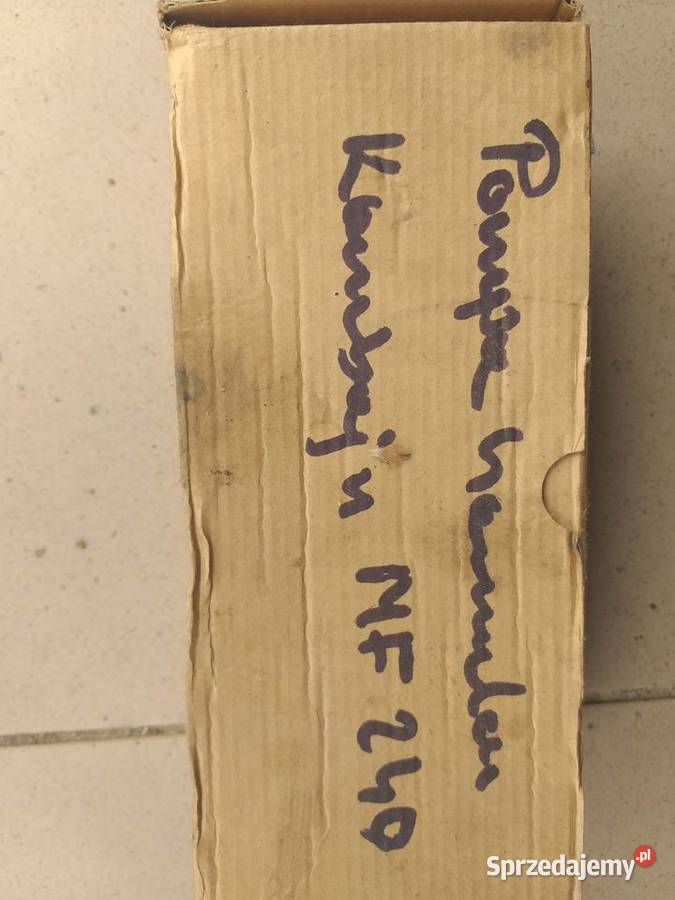 Pompa hamulca
Kombajn MF 240
Sprzedajemy.pl